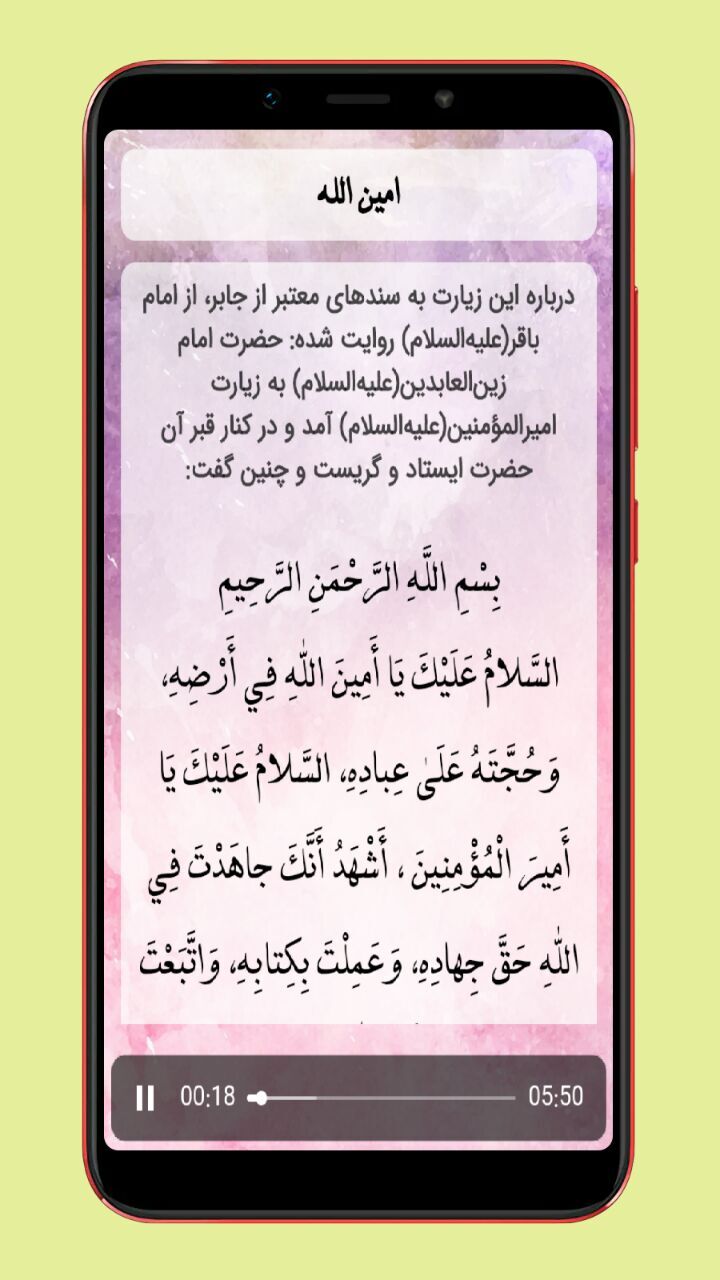 امین الله
درباره این زیارت به سندهای معتبر از جابر، از امام
باقر(علیه‌السلام) روایت شده: حضرت امام
زین‌العابدین(علیه‌السلام) به زیارت
امیرالمؤمنین(علیه‌السلام) آمد و در کنار قبر آن
حضرت ایستاد و گریست و چنین گفت:
بِسْمِ اللَّهِ الرَّحْمَنِ الرَّحِيمِ
السَّلامُ عَلَيْكَ يَا أَمِينَ اللّٰهِ فِي أَرْضِهِ،
وَحُجَّتَهُ عَلَىٰ عِبادِهِ، السَّلامُ عَلَيْكَ يَا
أَمِيرَ الْمُؤْمِنِينَ ، أَشْهَدُ أَنَّكَ جاهَدْتَ فِي
اللّٰهِ حَقَّ جِهادِهِ، وَعَمِلْتَ بِكِتابِهِ، وَاتَّبَعْتَ
00:18 05:50